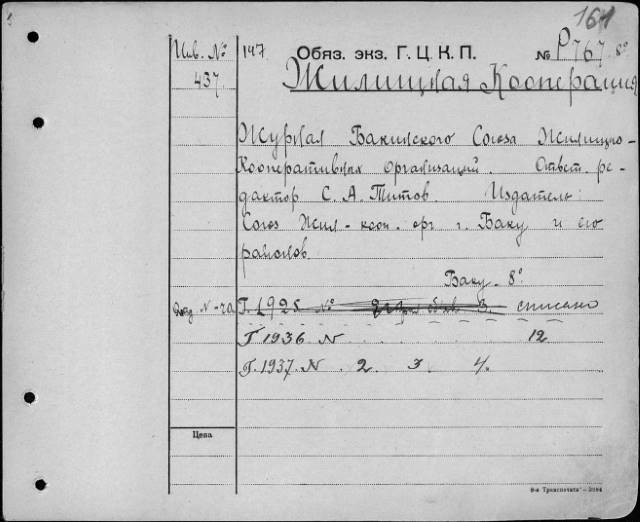 164
Инв. № 147 Обяз. экз. Г. Ц. К. П. № Р767 8°
437. Жилищная Кооперация
Журнал Бакинского Союза Жилищно-
Кооперативных организаций. Ответ. ре-
дактор С. А. Титов. Издатель:
Союз Жил-кооп. орг г. Баку и его
районов.
Баку. 8°
Г. 1925 № 3. списано
Г 1936 N 12
Г. 1937. N 2 3 4.
Цена